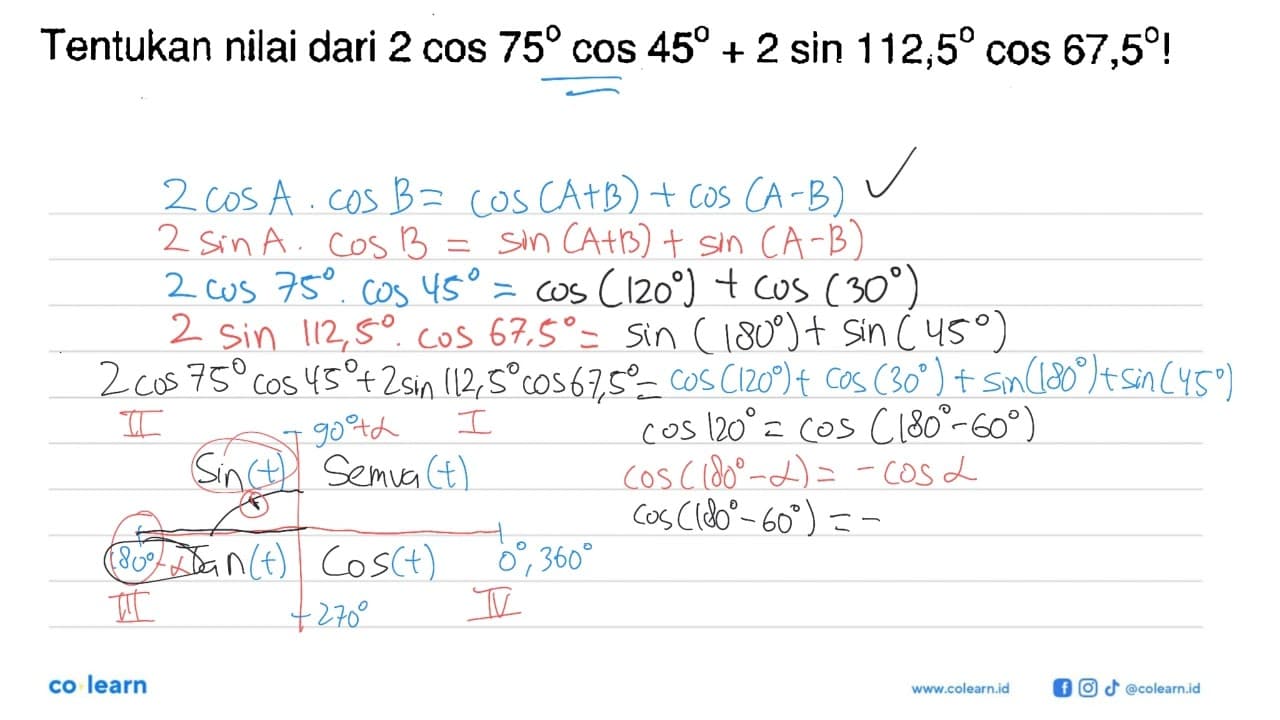 Tentukan nilai dari 2 cos 75° cos 45° + 2 sin 112,5° cos 67,5°!
2 cos A . cos B = cos (A+B) + cos (A-B) ✓
2 sin A . cos B = sin (A+B) + sin (A-B)
2 cos 75° . cos 45° = cos (120°) + cos (30°)
2 sin 112,5° . cos 67,5° = sin (180°) + sin (45°)
2 cos 75° cos 45° + 2 sin 112,5° cos 67,5° = cos (120°) + cos (30°) + sin (180°) + sin (45°)
II 90°+α I cos 120° = cos (180° - 60°)
Sin (+) Semua (+) cos (180° - α) = - cos α
cos (180° - 60°) = -
180° - α Tan (+) Cos (+) 0°, 360°
III 270° IV
co learn www.colearn.id @colearn.id